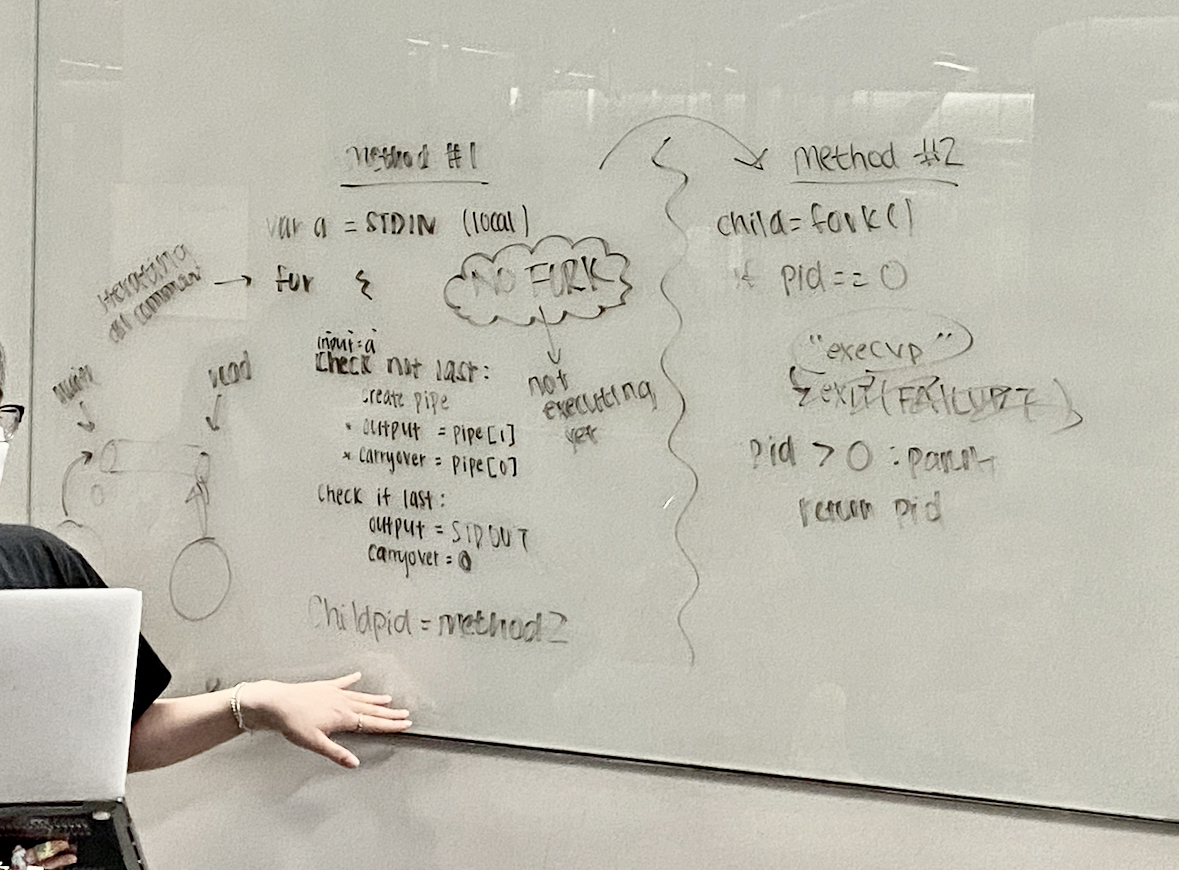 Method #1
var a = STDIN (local)
Iterating
all command
→ for {
NO FORK
not
executing
yet
input = a
Check not last:
create pipe
* output = pipe[1]
* carryover = pipe[0]
Check if last:
output = STDOUT
carryover = 0
Childpid = method2
read
method #2
child = fork()
if pid == 0
"execvp"
exit(FAILURE)
pid > 0 : parent
return pid